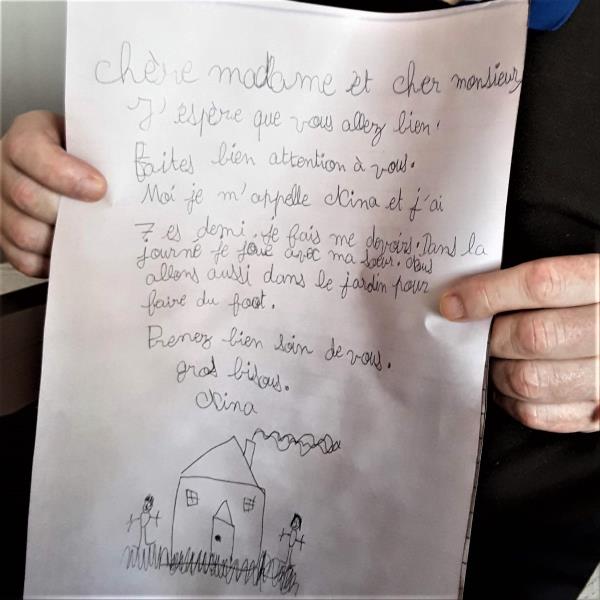 chère madame et cher monsieur,
J'espère que vous allez bien.
Faites bien attention à vous.
Moi je m'appelle Kina et j'ai
7 es demi. Je fais me devoirs. Dans la
journé je joue avec ma sœur. Nous
allons aussi dans le jardin pour
faire du foot.
Prenez bien soin de vous.
gros bisous.
Kina